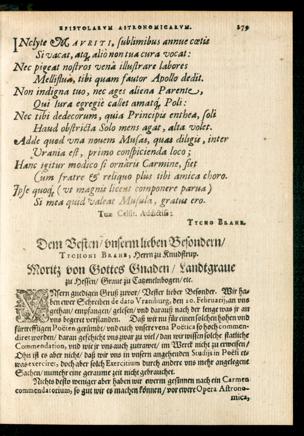 EPISTOLARUM ASTRONOMICARUM. 279
INclyte MAVRITI, sublimibus annue cœtis
Si vacat, atq, aliò non tua cura vocat:
Nec pigeat nostros venâ illustrare labores
Mellifluâ, tibi quam fautor Apollo dedit.
Non indigna tuo, nec ages aliena Parente,
Qui Iura egregiè callet amatq, Poli:
Nec tibi dedecorum, quia Principis enthea, soli
Haud obstricta Solo mens agat, alta volet.
Adde quod vna nouem Musas, quas diligis, inter
Vrania est, primo conspicienda loco;
Hanc igitur modico si ornâris Carmine, fiet
Cum fratre & reliquo plus tibi amica choro.
Ipse quoq, (vt magnis liceat componere parua)
Si mea quid valeat Musula, gratus ero.
Tuæ Celsit. Addictiss:
TYCHO BRAHE.
Dem Vesten/ vnserm lieben Besondern/
TYCHONI BRAHE, Herrn zu Knudstrup.
Moritz von Gottes Gnaden/ Landtgraue
zu Hessen/ Graue zu Catzenelnbogen/ etc.
VNsern gnedigen Gruß zuvor/ Vester lieber Besonder. Wir ha-
ben ewer Schreiben de dato Vranburg, den 10. Februarij, an vns
gethan/ empfangen/ gelesen/ vnd darauß nach der lenge was jr an
vns begeret verstanden. Daß wir nu für einen solchen haben vnd
fürtreffligen Poëten gerümbt/ vnd euch vnsere vena Poëtica so hoch commen-
diret worden/ daran geschicht vns zwar zu viel/ dan wir wissen solche stattliche
Commendation, vnd wie jr vns auch zutrawet/ im Werck nicht zu erweisen/
Ohn ist es aber nicht/ daß wir vns in vnsern angehenden Studijs in Poësi et-
was exerciret, doch aber solch Exercitium durch andere vns mehr angelegene
Sachen/ numehr eine geraume zeit nicht gebrauchet.
Nichts desto weniger aber haben wir ewerm gesinnen nach ein Carmen
commendatorium, so gut wir es machen können/ vor ewere Opera Astrono-
mica,